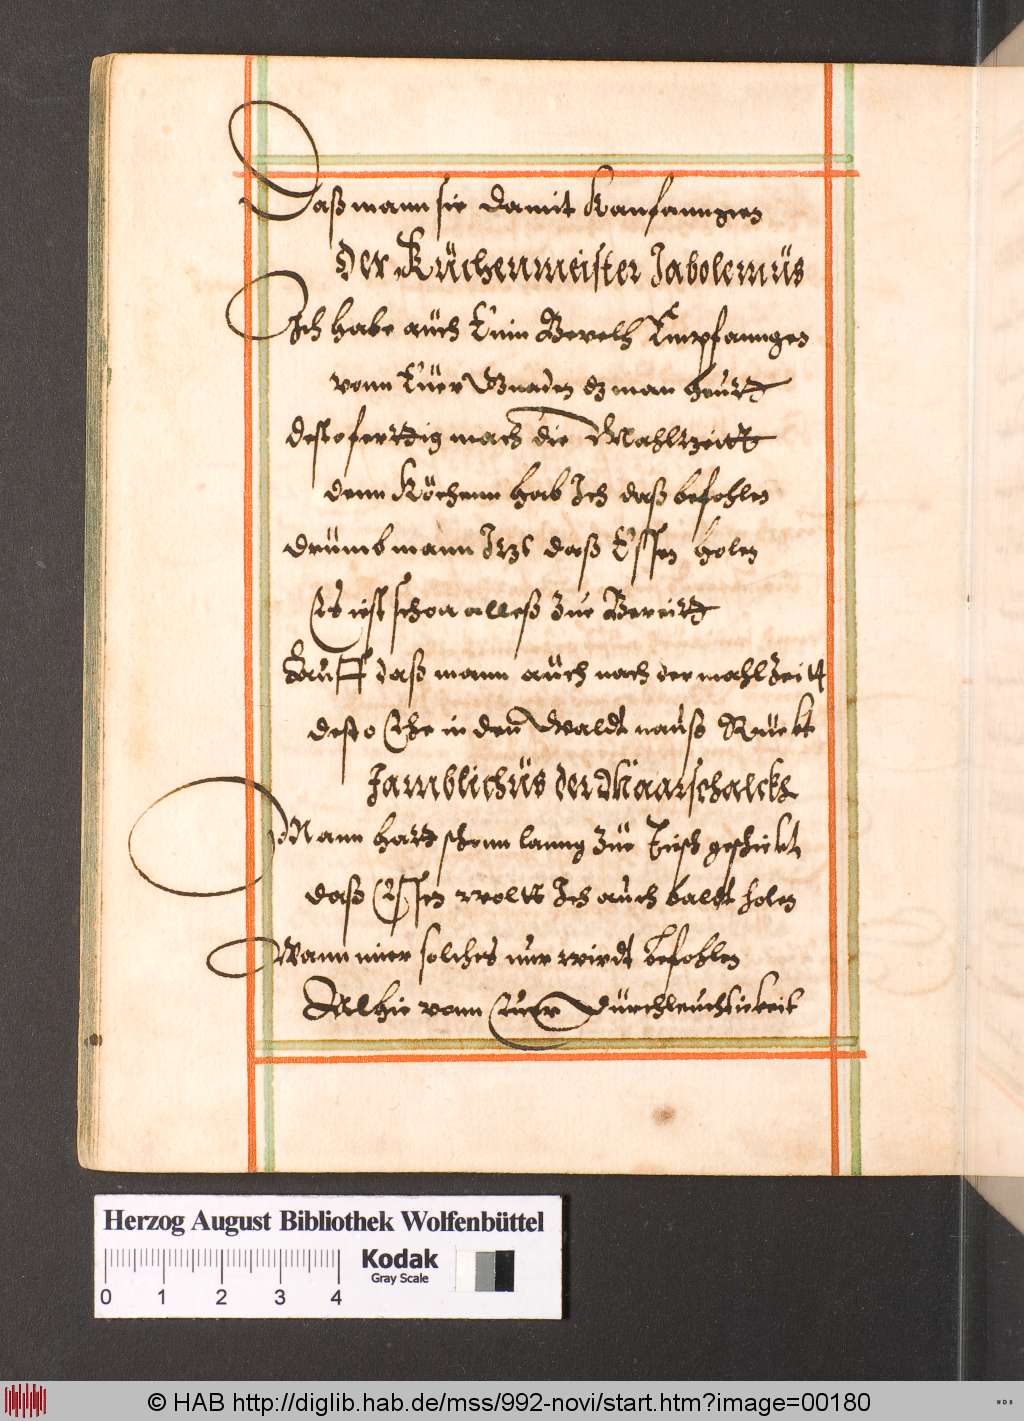 Daß mann sie damit kan fanngen
Der Küchenmeister Jabolemüs
Ich habe auch Einn Beuelh Empfanngen
vonn Eüer Gnaden dz man heutt
desto ferttig mach die Mahltzeitt
denn Köchenn hab Ich daß befohlen
drümb mann Itzt daß Essen holen
Es ist schon alleß züe Bereitt
Eauff daß mann auch nach der mahl Zeitt
desto Ehe in den Waldt nauß Rückt
Jamblichüs der Maarschalckh
Mann hatt schonn lanng züe Tisch geschickt
daß Essen wolte Ich auch baldt holen
Wann mier solches nur wirdt befohlen
Alhie vonn Euer Dürchleuchtickeit
Herzog August Bibliothek Wolfenbüttel
Kodak
Gray Scale
0 1 2 3 4
© HAB http://diglib.hab.de/mss/992-novi/start.htm?image=00180